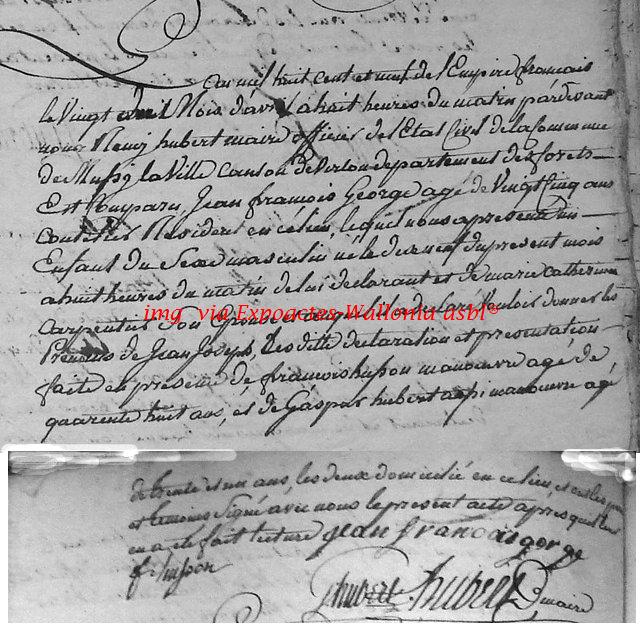 an mil huit cent et neuf de l'Empire francais
le Vingt avril Mois d'avril a huit heures du matin pardevant
nous hubert maire officier de l'Etat Civil de la Commune
de Mussy la Ville canton de Virton departement des forets
Est Comparu Jean françois George agé de Vingt cinq ans
Resident en ce lieu, lequel nous a presenté un
Enfant du Sexe masculin né le du present mois
a huit heures du matin de lui declarant et de marie catherine
carpentier Son Epouse et auquel il a declaré Vouloir donner les
Prenoms de Jean Joseph, Les ditte declaration et presentation
faite en presence de françois husson manoeuvre agé de
quarente huit ans, et de Gaspar hubert aussi manoeuvre agé
img via Expoactes-Wallonia asbl®
de trente et un ans, les deux domicilié en ce lieu, et ont les
et temoins Signé avec nous le present acte apres que leur
en a eté fait lecture jean francois gorge
f husson
ghubert hubert maire